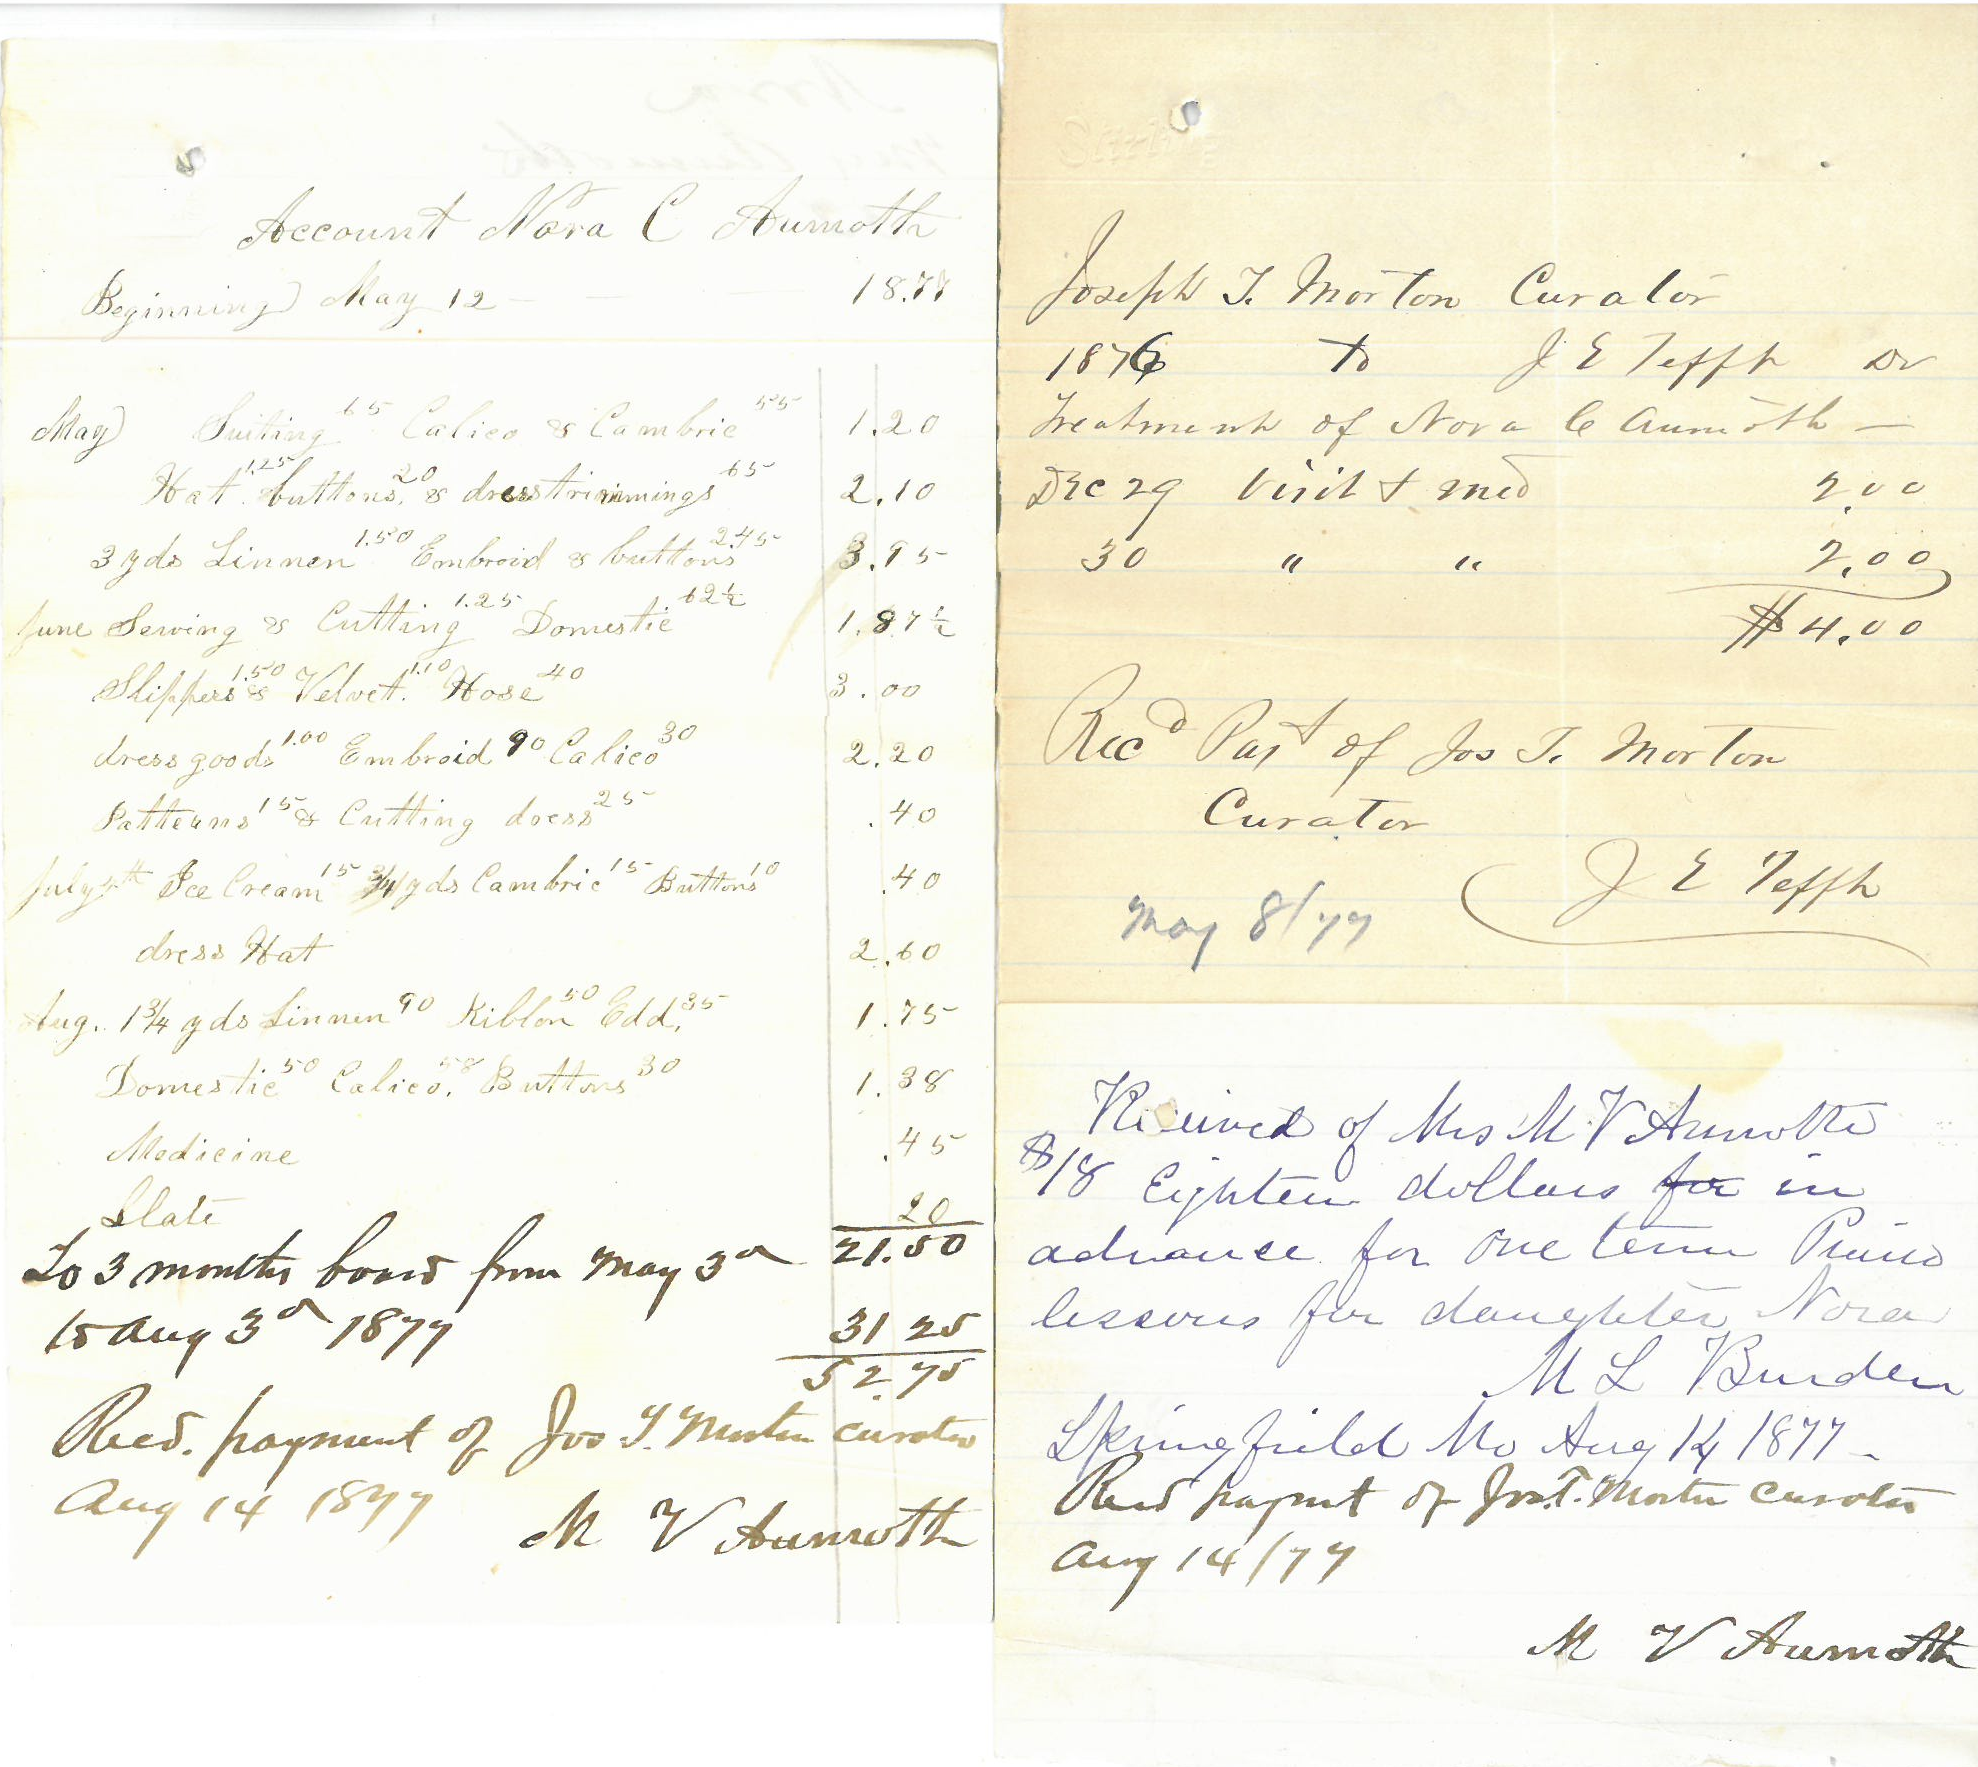 Account Nora C Aumoth
Beginning May 12 — — 1877
May Suiting 65 Calico & Cambric 55 1.20
Hat 1.25 buttons, 20 & dresstrimmings 65 2.10
3 yds Linnen 1.50 Embroid & buttons 2.45 3.95
June Sewing & Cutting 1.25 Domestic 62½ 1.87½
Slippers 1.50 & Velvet. 1.10 Hose 40 3.00
dress goods 1.00 Embroid 90 Calico 30 2.20
Patterns 15 & Cutting dress 25 .40
July 4th Ice Cream 15 3/4 yds Cambric 15 Buttons 10 .40
dress Hat 2.60
Aug. 1 3/4 yds Linnen 90 Ribbon 50 Edd. 35 1.75
Domestic 50 Calico, 58 Buttons 30 1.38
Medicine .45
Slate 20
21.50
To 3 months board from May 3d
to Aug 3d 1877 31 25
52.75
Recd. payment of Jos T. Morton curator
Aug 14 1877
M V Aumoth
Joseph T. Morton Curator
1876 to J E Tefft Dr
Treatment of Nora C Aumoth —
Dec 29 Visit & med 2.00
30 " " 2.00
$4.00
Recd Pat of Jos T. Morton
Curator
J E Tefft
May 8/77
Received of Mrs M. V Aumoth
$18 Eighteen dollars for in
advance for one term Piano
lessons for daughter Nora
M L Burden
Springfield Mo Aug 14 1877 –
Recd paymt of Jos. T. Morton curator
Aug 14/77
M V Aumoth